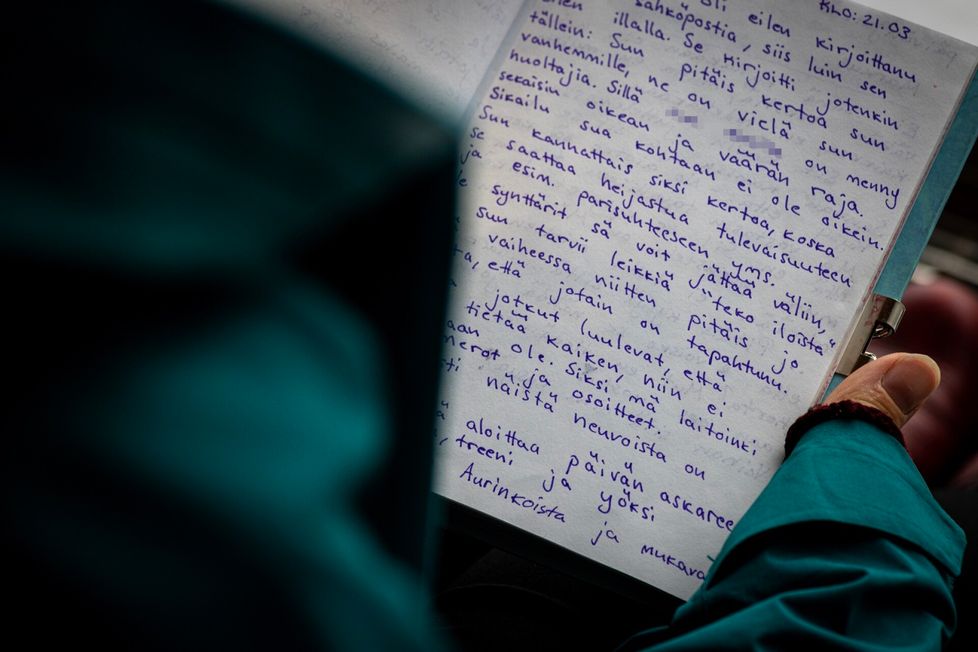 KLO: 21.03
oli eilen kirjoittanu
sähköpostia, siis luin sen
illalla. Se kirjoitti jotenkin
tällein: Sun pitäis kertoa sun
vanhemmille, ne on vielä sun
huoltajia. Sillä ja on menny
sekaisin oikean ja väärän raja.
Sikailu sua kohtaan ei ole oikein.
Sun kannattais siksi kertoa, koska
se saattaa heijastua tulevaisuuteen
ja esim. parisuhteeseen yms.
synttärit sä voit jättää väliin,
sun tarvii leikkiä "teko iloista"
vaiheessa niitten pitäis jo
että jotain on tapahtunu.
jotkut luulevat, että
tietää kaiken, niin ei
ole. Siksi mä laitoinki
ja osoitteet.
näistä neuvoista on
aloittaa päivän askaree
treeni ja yöksi
Aurinkoista ja mukava